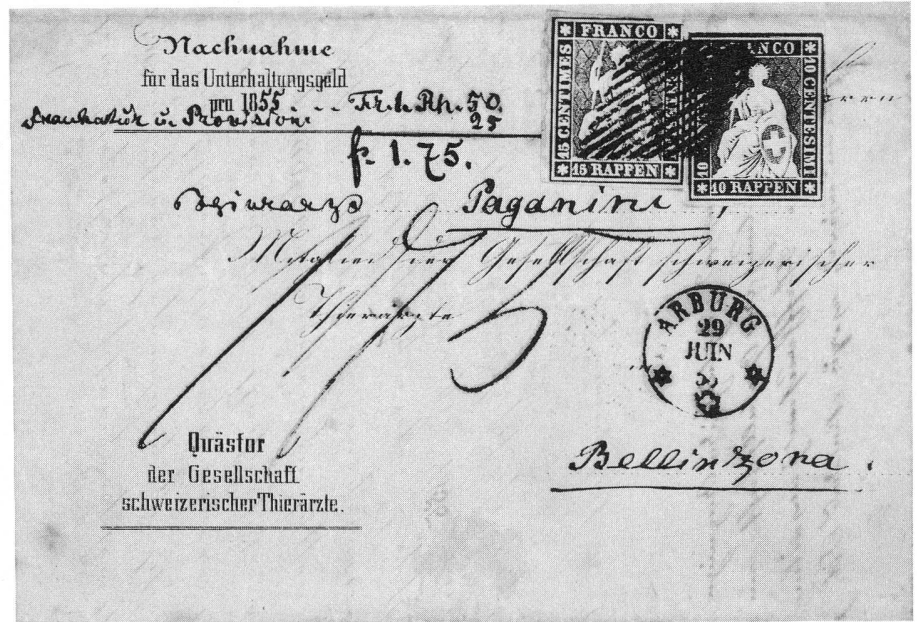 Nachnahme
für das Unterhaltungsgeld
pro 1855 -- Fr. 1. Rh. 50.
Frankatur u. Provision 25
fr. 1. 75.
FRANCO
15 CENTIMES
15 RAPPEN
FRANCO
10 CENTESIMI
10
10 RAPPEN
Herrn
Thierarzt Paganini,
Mitglied der Gesellschaft schweizerischer
Thierärzte
175
ARBURG
29
JUIN
Quästor
der Gesellschaft
schweizerischer Thierärzte.
Bellinzona.